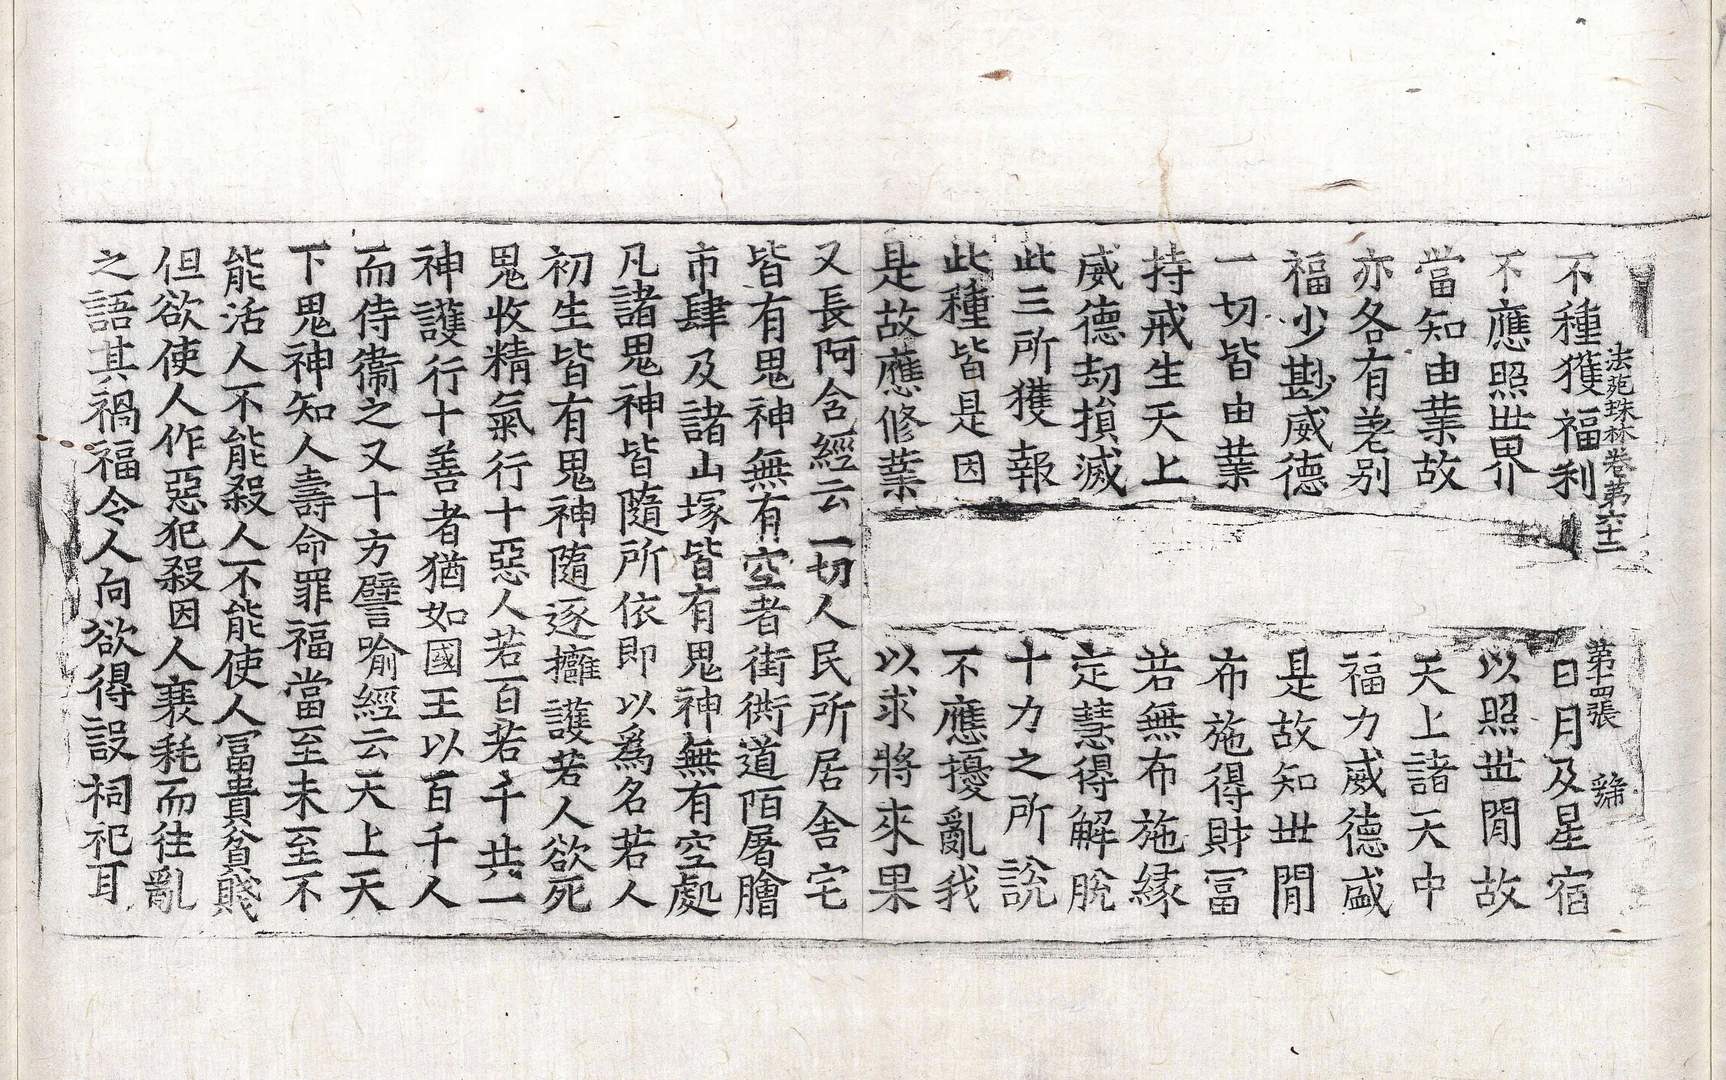 法苑珠林卷第六十二 第十四張 㶇
不種獲福利 日月及星宿
不應照世界 以照世間故
當知由業故 天上諸天中
亦各有差別 福力威德盛
福少尠威德 是故知世間
一切皆由業 布施得財冨
持戒生天上 若無布施縁
威德刧損滅 定慧得解脫
此三所獲報 十力之所說
此種皆是因 不應擾亂我
是故應修業 以求將來果
又長阿含經云一切人民所居舍宅
皆有鬼神無有空者街衖道陌屠膾
市肆及諸山塚皆有鬼神無有空處
凡諸鬼神皆隨所依即以為名若人
初生皆有鬼神隨逐擁護若人欲死
鬼收精氣行十惡人若百若千共一
神護行十善者猶如國王以百千人
而侍衞之又十方譬喻經云天上天
下鬼神知人壽命罪福當至未至不
能活人不能殺人不能使人冨貴貧賤
但欲使人作惡犯殺因人衰耗而往亂
之語其禍福令人向欲得設祠祀耳